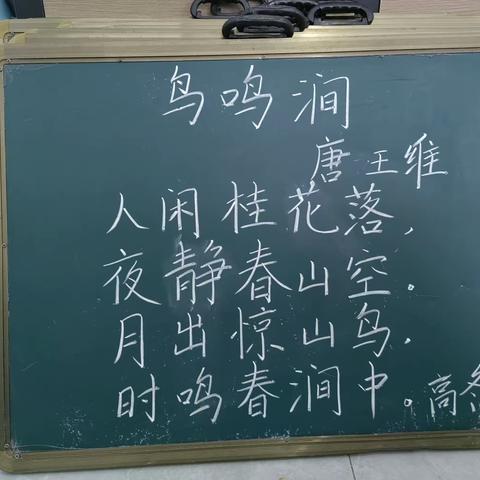 鸟鸣涧
唐 王维
人闲桂花落，
夜静春山空。
月出惊山鸟，
时鸣春涧中。
高